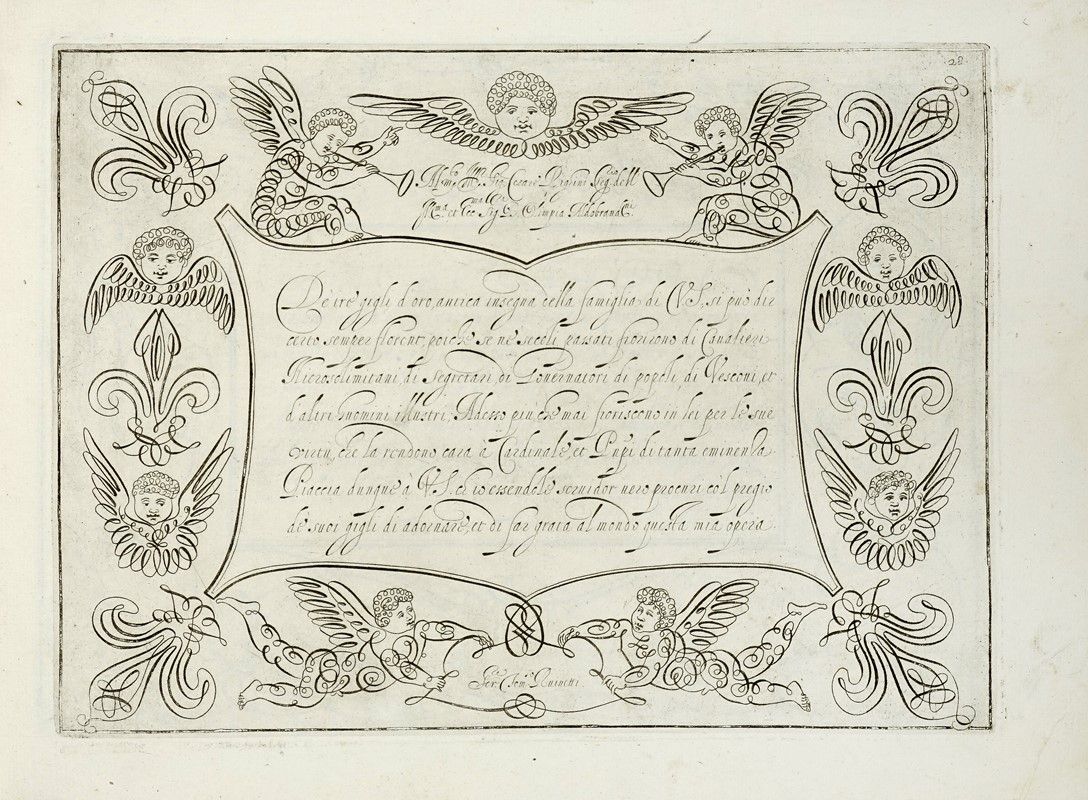 28
Al m.to Ill.re Sig. Cesare Righini Seg.rio dell
Ill.ma et Ecc.ma Sig.ra D. Olimpia Aldobrand.ni
De tre gigli d'oro, antica insegna della famiglia di V.S. si può dir
certo semper florent, poiche se ne secoli passati fiorirono di Cavalieri
Hierosolimitani, di Segretari, di Governatori di popoli, di Vesconi, et
d'altri huomini illustri, Adesso più che mai fioriscono in lei per le sue
virtù, che la rendono cara à Cardinale, et Pnpi di tanta eminenza
Piaccia dunque à V.S. ch'io essendole servidor vero procuri co'l pregio
de suoi gigli di adornare, et di far grata al mondo questa mia opera.
Ser.re Tom.o Ruinetti